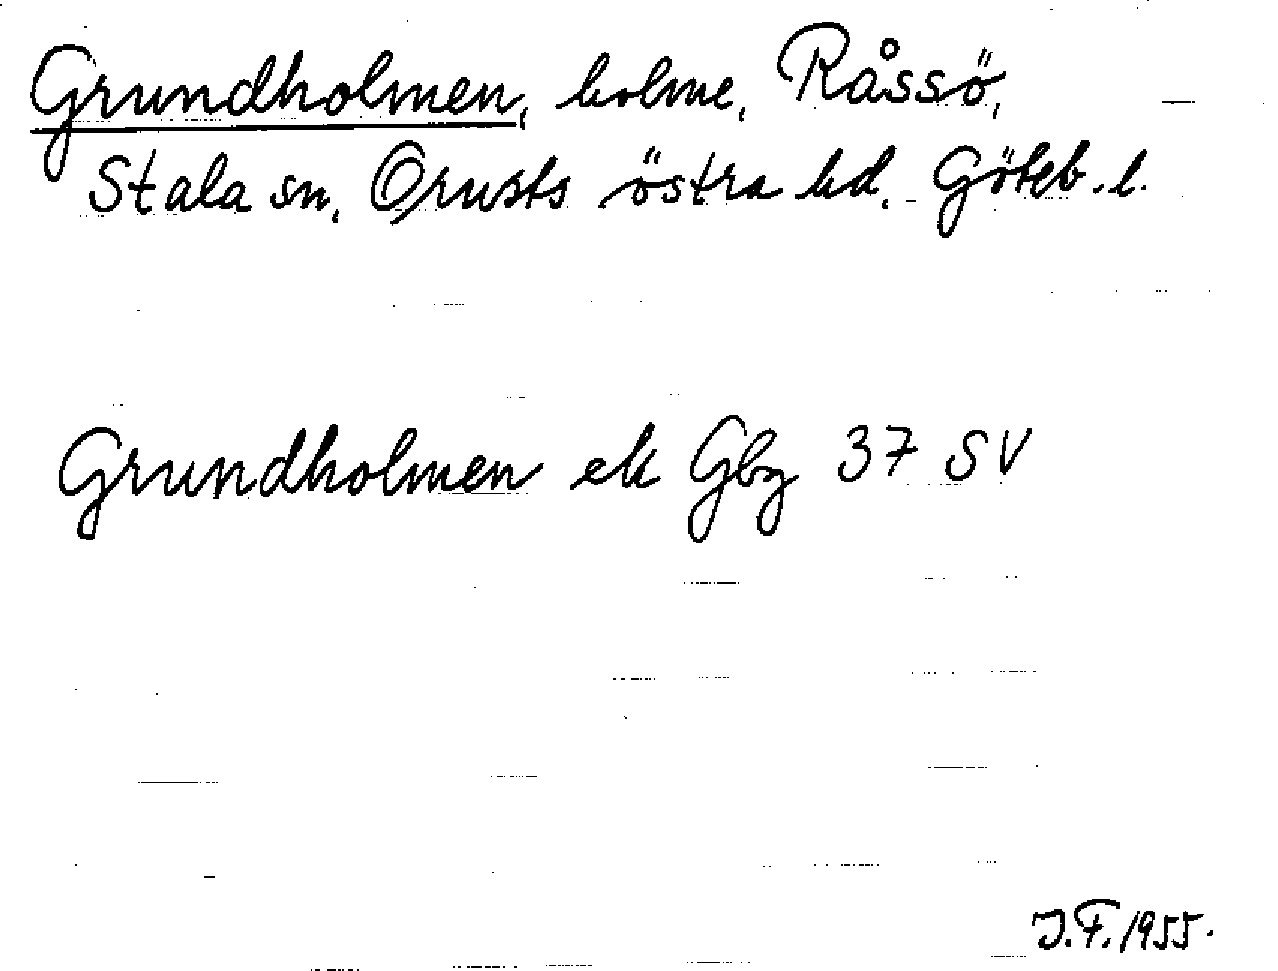 Grundholmen, holme, Råssö,
Stala sn, Orusts östra hd, Göteb. l.
Grundholmen ek Gbg 37 SV
J.F. 1955.